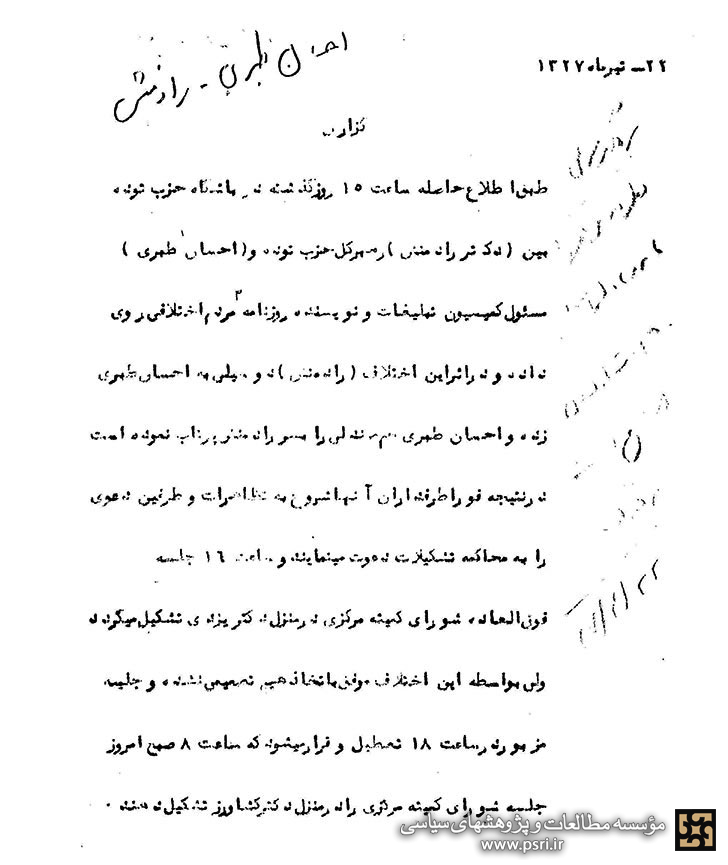 احسان طبری - رادمنش
۲۲ - تیرماه ۱۳۲۷
گزارش
طبق اطلاع حاصله ساعت ۱۵ روز گذشته در باشگاه حزب توده
بین (دکتر رادمنش) رهبر کل حزب توده و (احسان طبری)
مسئول کمیسیون تبلیغات و نویسنده روزنامه مردم اختلافی روی
داده و در اثر این اختلاف (رادمنش) دو سیلی به احسان طبری
زده و احسان طبری هم صندلی را بسر رادمنش پرتاب نموده است
در نتیجه فورا طرفداران آنها شروع به تظاهرات و طرفین دعوی
را به محاکمه تشکیلات دعوت مینمایند و ساعت ۱۶ جلسه
فوق العاده شورای کمیته مرکزی در منزل دکتر یزدی تشکیل میگردد
ولی بواسطه این اختلاف موفق باتخاذ هیچ تصمیمی نشده و جلسه
مزبور در ساعت ۱۸ تعطیل و قرار میشود که ساعت ۸ صبح امروز
جلسه شورای کمیته مرکزی را در منزل دکتر کشاورز تشکیل دهند .
مؤسسه مطالعات و پژوهشهای سیاسی
www.psri.ir